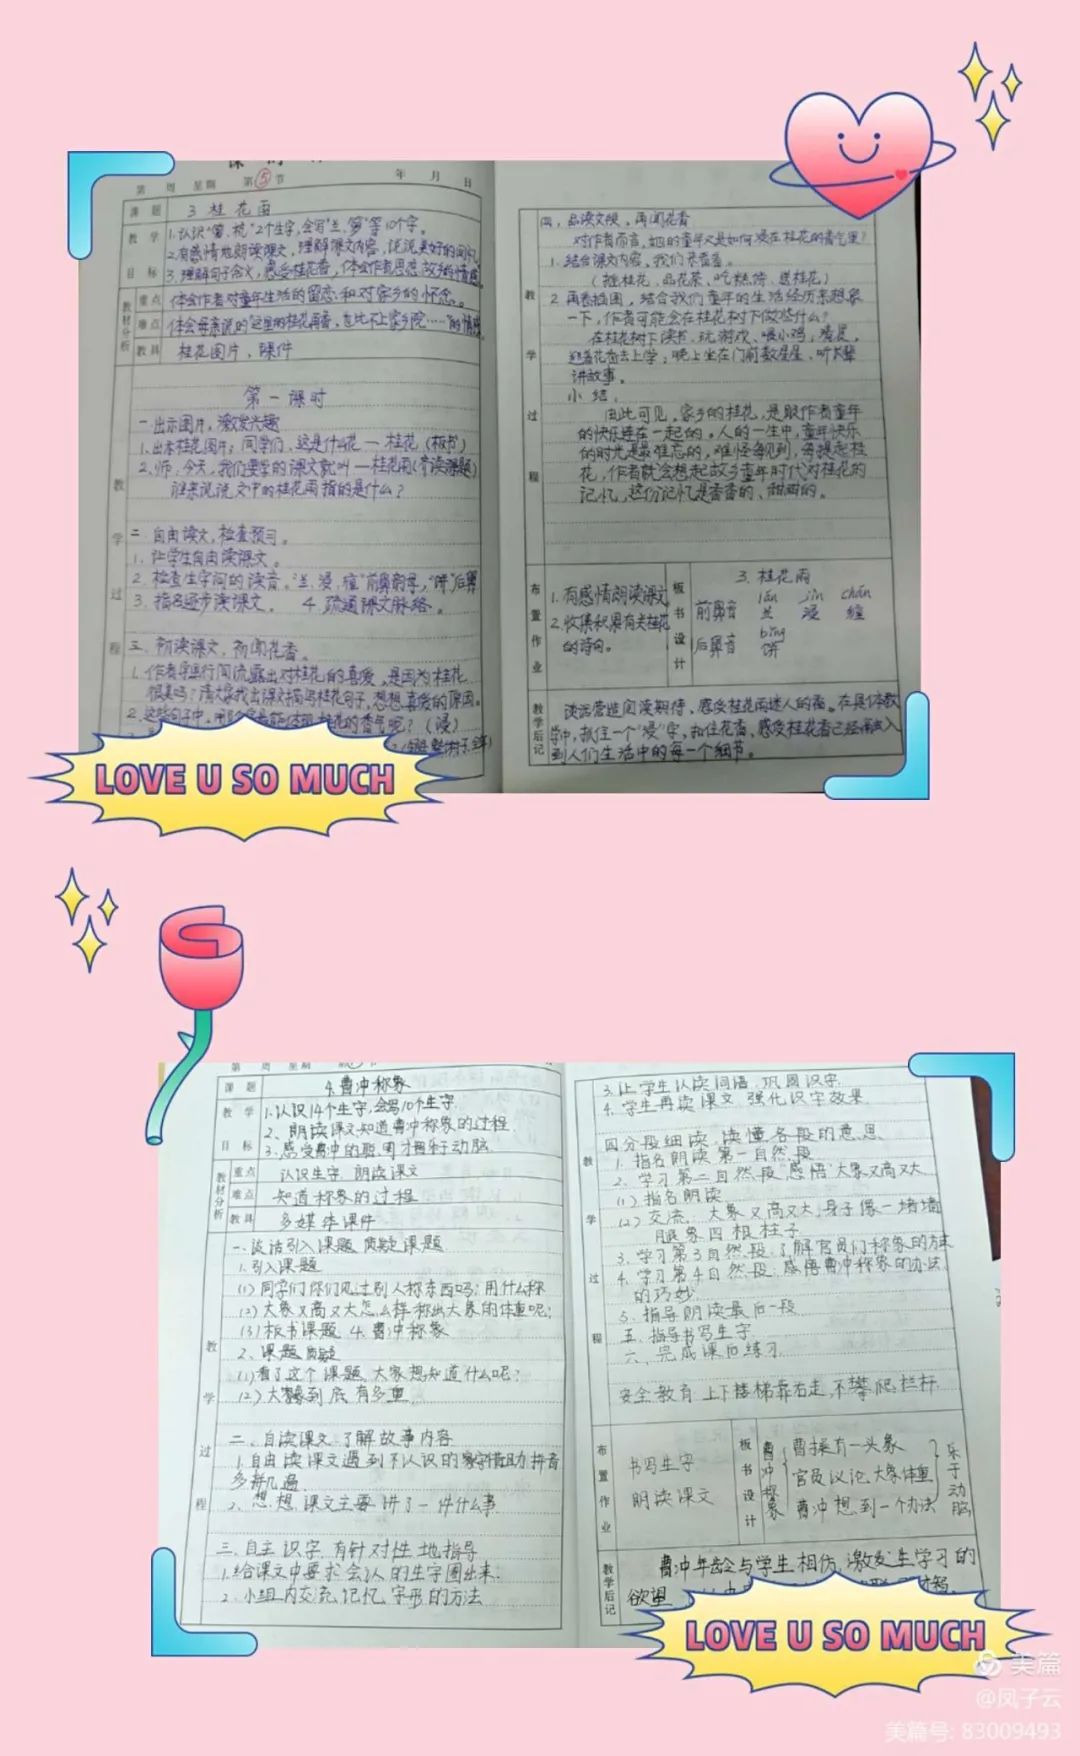 第 周 星期 第⑤节 年 月 日
课题 3 桂花雨
教学目标
1.认识"箩、杭"2个生字,会写"兰、箩"等10个字。
2.有感情地朗读课文,理解课文内容,说说美好的词句。
3.理解句子含义,感受桂花香,体会作者思恋故乡的情感。
教材分析
重点 体会作者对童年生活的留恋和对家乡的怀念。
难点 体会母亲说的"这里的桂花再香,也比不上家乡院……"的情感
教具 桂花图片、课件
教学过程
第一课时
一.出示图片,激发兴趣
1.出示桂花图片:同学们,这是什么花—桂花(板书)
2.师:今天,我们要学的课文就叫—桂花雨(齐读课题)
谁来说说文中的桂花雨指的是什么?
二.自由读文,检查预习。
1.让学生自由读课文。
2.检查生字词的读音。"兰、浸、缠"前鼻韵母,"饼"后鼻
3.指名逐步读课文。 4.疏通课文脉络。
三.初读课文,初闻花香。
1.作者字里行间流露出对桂花的喜爱,是因为桂花
很美吗?请大家找出课文描写桂花句子,想想喜爱的原因。
2.这些句子中,哪个字最能体现桂花的香气呢?(浸)
四、品读文段,再闻花香
对作者而言,她的童年又是如何浸在桂花的香气里?
1.结合课文内容,我们来看看。
(摇桂花、品花茶、吃糕饼、送桂花)
2.再看插图,结合我们童年的生活经历来想象
一下,作者可能会在桂花树下做些什么?
在桂花树下读书、玩游戏、喂小鸡;清晨,
迎着花香去上学;晚上坐在门前数星星、听长辈
讲故事。
小结:
由此可见,家乡的桂花,是跟作者童年
的快乐连在一起的。人的一生中,童年快乐
的时光是最难忘的,难怪每见到,每提起桂
花,作者就会想起故乡童年时代对桂花的
记忆,这份记忆是香香的、甜甜的。
教学过程
布置作业
1.有感情朗读课文
2.收集积累有关桂花
的诗句。
板书设计
3.桂花雨
lán jìn chán
前鼻音 兰 浸 缠
bǐng
后鼻音 饼
教学后记
谈话营造阅读期待,感受桂花雨迷人的香。在具体教
学中,抓住一个"浸"字,扣住花香,感受桂花香已经融入
到人们生活中的每一个细节。
LOVE U SO MUCH
第 周 星期
课题 4.曹冲称象
教学目标
1.认识14个生字,会写10个生字.
2、朗读课文知道曹冲称象的过程
3.感受曹冲的聪明才智和乐于动脑.
教材分析
重点 认识生字.朗读课文
难点 知道称象的过程
教具 多媒体课件
教学过程
一、谈话引入课题 质疑课题
1.引入课题
(1)同学们你们见过别人称东西吗?用什么称
(2)大象又高又大怎么样称出大象的体重呢?
(3)板书课题 4.曹冲称象
2、课题质疑
(1)看了这个课题,大家想知道什么呢?
(2)大象到底有多重,
二、自读课文,了解故事内容
1.自由读课文遇到不认识的字借助拼音
多拼几遍
2、想想课文主要讲了一件什么事
三、自主识字,有针对性地指导
1.给课文中要求会认的生字圈出来.
2、小组内交流记忆字形的方法
3.让学生认读词语,巩固识字
4.学生再读课文,强化识字效果.
四分段细读,读懂各段的意思
1.指名朗读第一自然段
2.学习第二自然段"感悟"大象又高又大
(1)指名朗读
(2)交流:大象又高又大,身子像一堵墙
腿象四根柱子
3.学习第3自然段:了解官员们称象的方法
4.学习第4自然段:感悟曹冲称象的办法
的巧妙
5、指导朗读最后一段
五、指导书写生字
六、完成课后练习.
安全教育 上下楼梯靠右走,不攀爬栏杆.
教学过程
布置作业
书写生字
朗读课文
板书设计
曹冲称象
曹操有一头象
官员议论大象体重
曹冲想到一个办法
乐于动脑
教学后记
曹冲年龄与学生相仿,激发生学习的
欲望
LOVE U SO MUCH
美篇
@凤子云
美篇号: 83009493